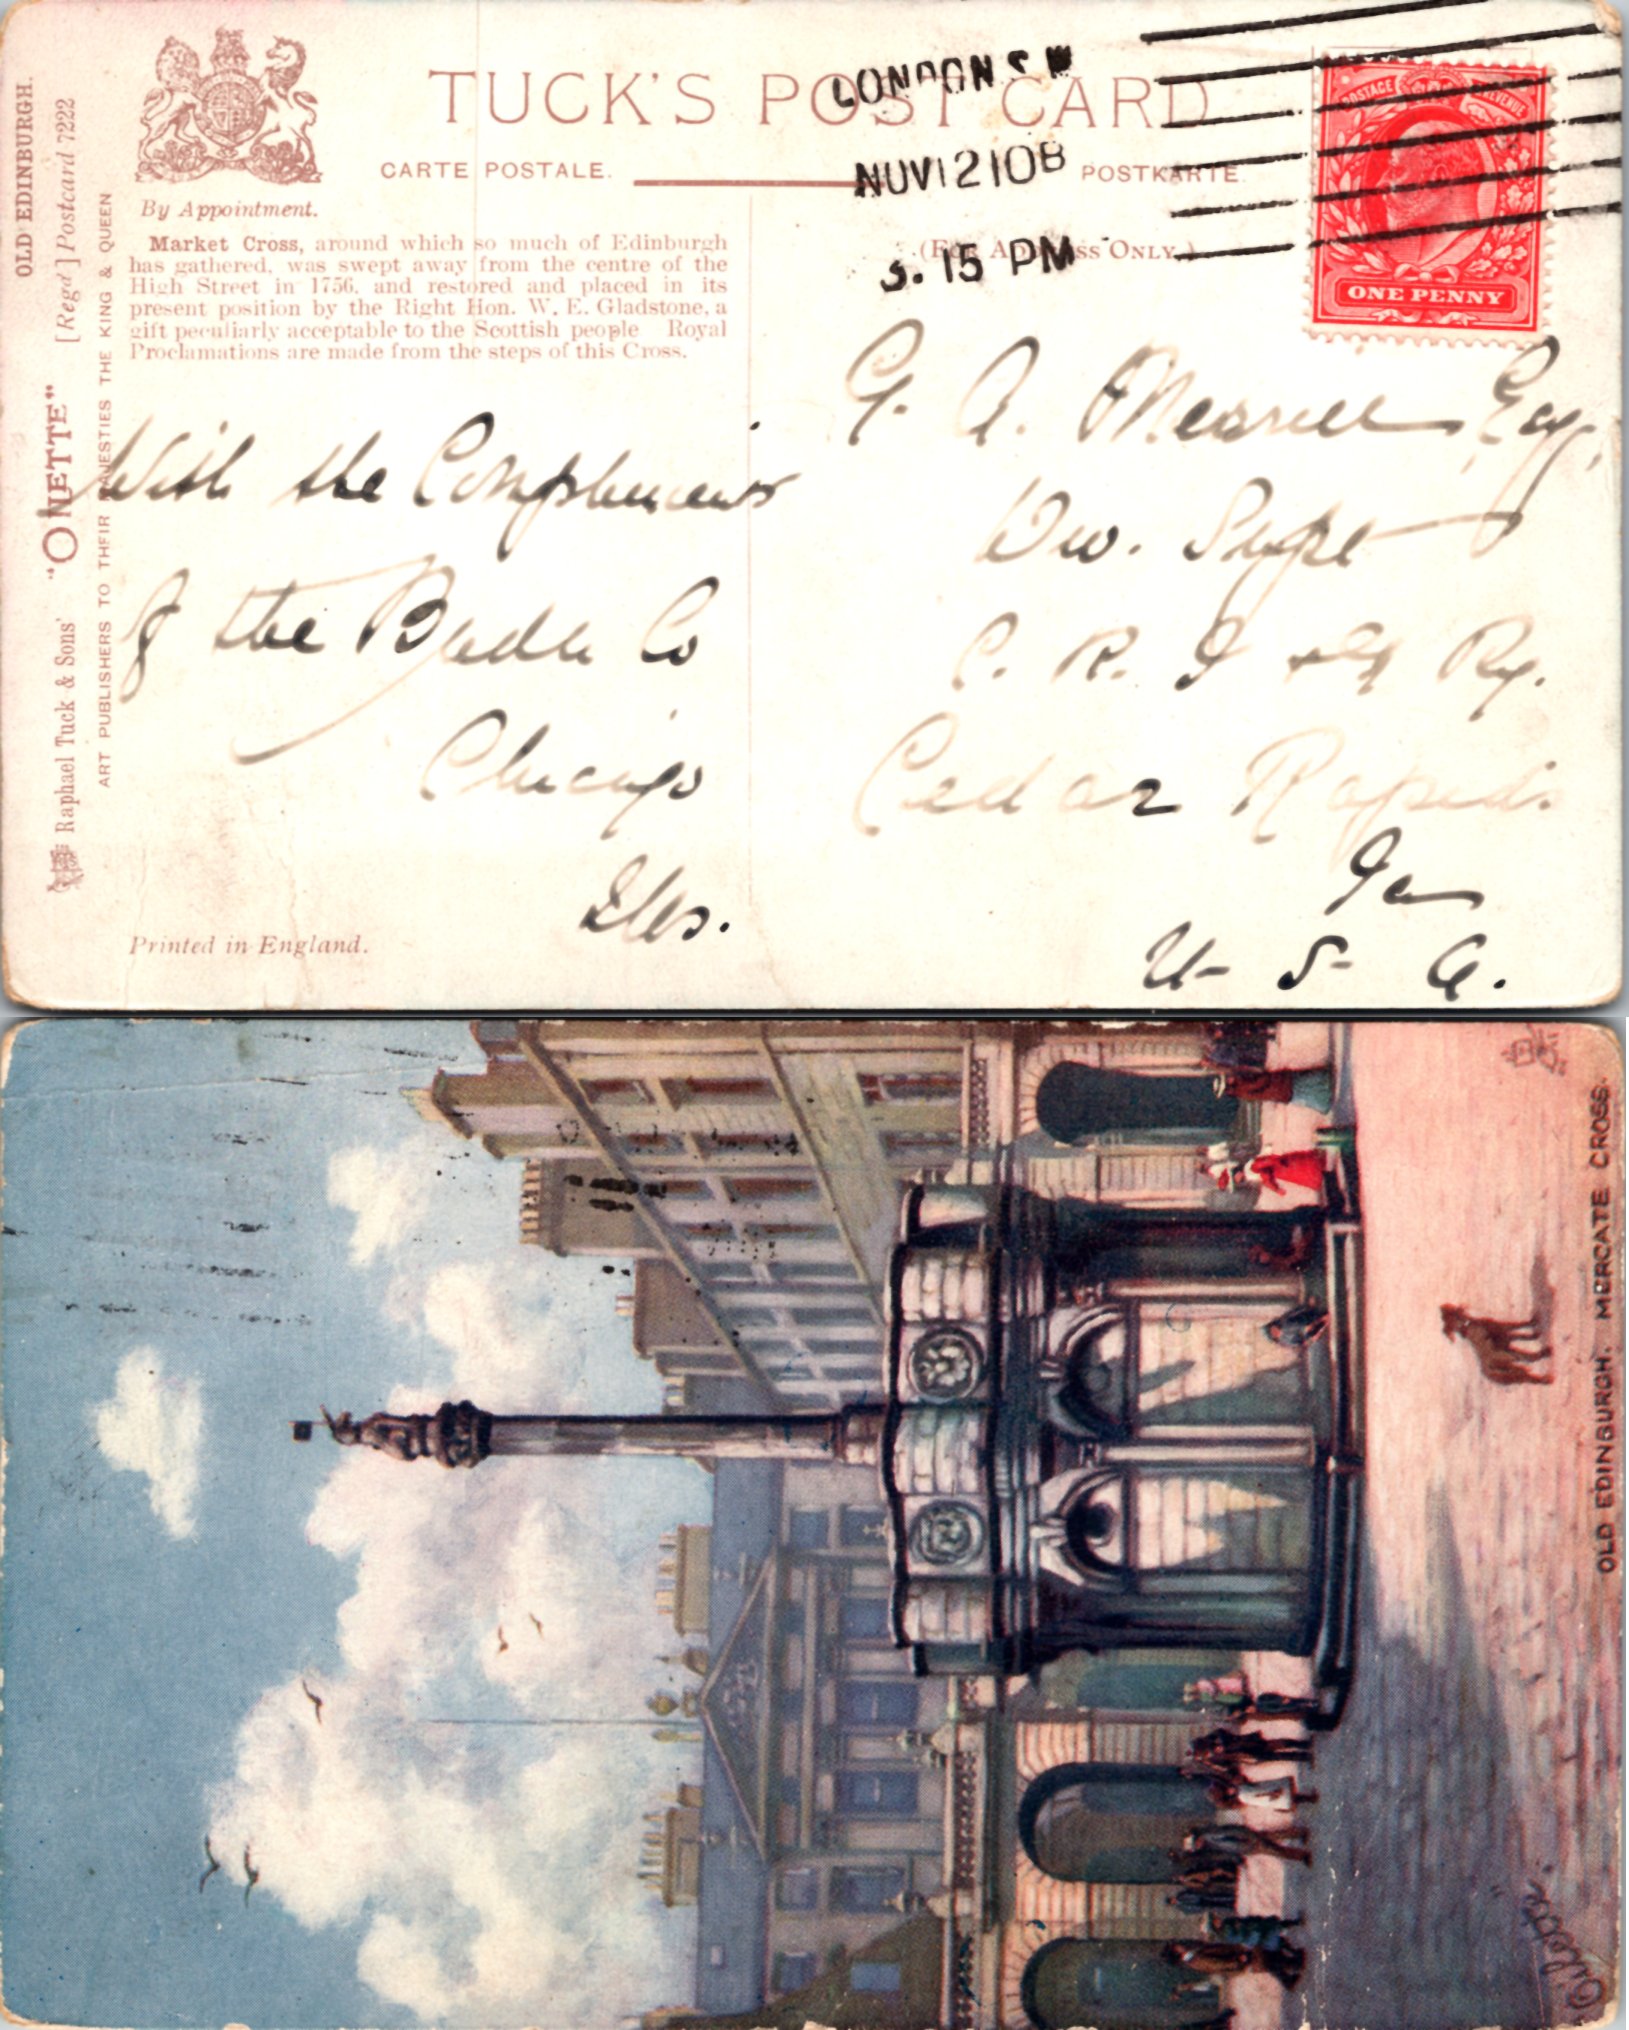 OLD EDINBURGH.
[Regd] Postcard 7222
"ONETTE"
Raphael Tuck & Sons'
ART PUBLISHERS TO THEIR MAJESTIES THE KING & QUEEN
TUCK'S POST CARD
CARTE POSTALE.
POSTKARTE.
By Appointment.
(FOR ADDRESS ONLY.)
LONDON S W
NOV 12 10 B
3. 15 PM
POSTAGE REVENUE
ONE PENNY
Market Cross, around which so much of Edinburgh
has gathered, was swept away from the centre of the
High Street in 1756, and restored and placed in its
present position by the Right Hon. W. E. Gladstone, a
gift peculiarly acceptable to the Scottish people Royal
Proclamations are made from the steps of this Cross.
With the Compliments
of the Buda Co
Chicago
Ills.
G. A. Merrill Esq.
Div. Supt
C. R. I & P Ry.
Cedar Rapids
Ia
U-S-A.
Printed in England.
OLD EDINBURGH. MERCATE CROSS.
"Oilette"